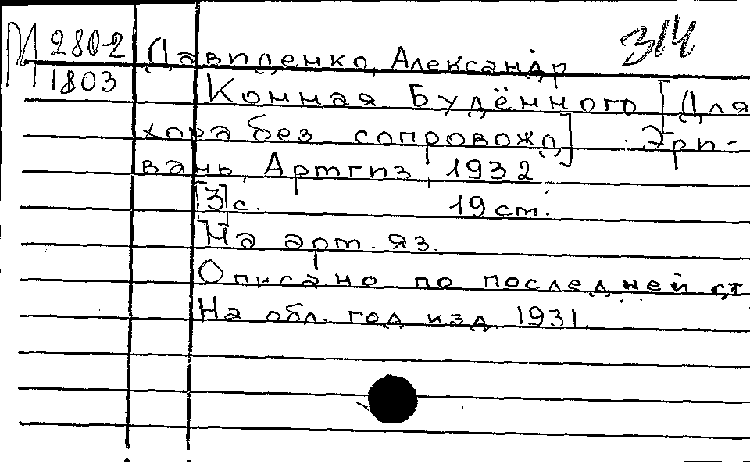 М 2802 Давиденко, Александр 314
1803 Конная Будённого [Для
хора без сопровожд.] Эри-
вань, Армгиз, 1932
[3]с. 19 см.
На арм. яз.
Описано по последней ст
На обл. год изд. 1931